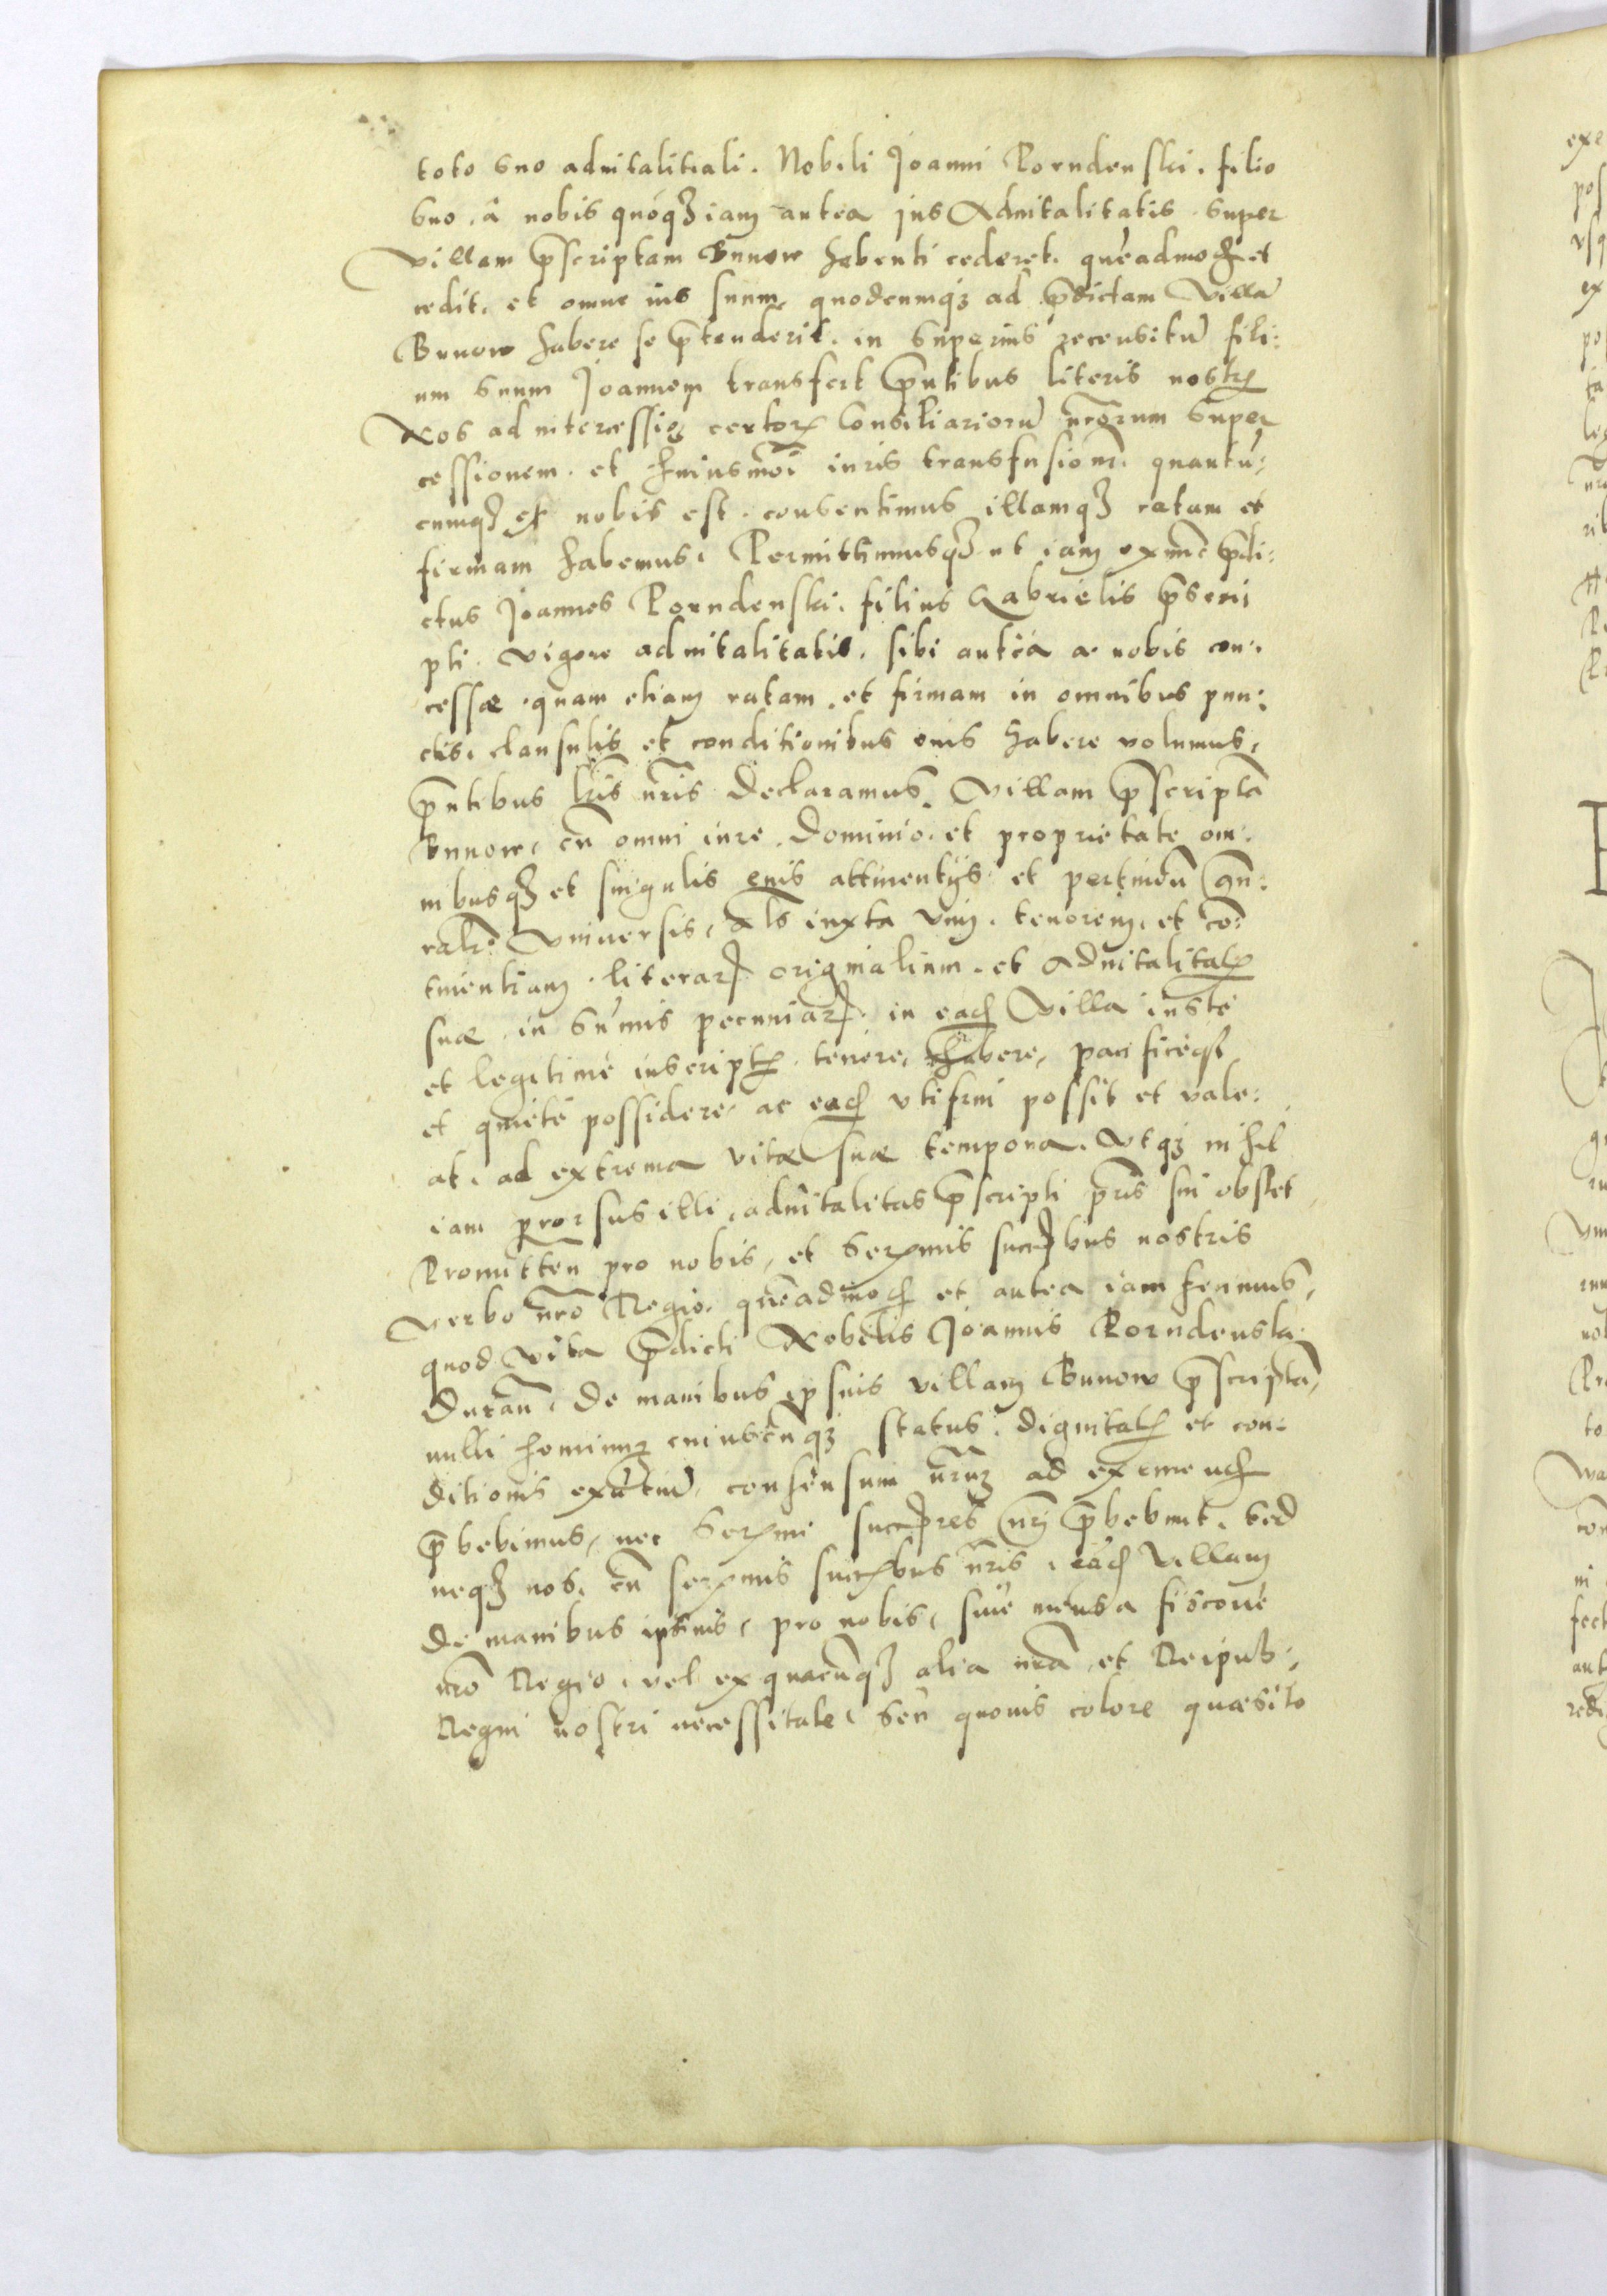 toto suo aduitalitiali. Nobili Joanni Porudenski. filio
suo. â nobis quoqꝫ iam antea ius Aduitalitatis super
villam p̄scriptam Bunow habenti cederet. quẽadmodꝫ et
cedit. et omne ius suum, quodcumqꝫ ad p̄dictam villã
Bunow habere se p̄tenderit. in superius recensitũ fili:
um suum Joannem transfert p̄ntibus literis nostris
Nos ad intercessioꝫ certoꝝ Consiliariorũ nr̃orum super
cessionem. et huiusmo͠i iuris transfusionẽ. quantũ:
cumqꝫ ex nobis est. consentimus illamqꝫ ratam et
firmam habemus. Permittimusqꝫ ut iam ex nunc p̄di:
ctus Joannes Porudenski. filius Gabrielis p̄scri
pti. vigore aduitalitatis. sibi antea a nobis con:
cessæ. quam etiam ratam. et firmam in omnibus pun:
ctis. clausulis et conditionibus suis habere volumus,
p̄ntibus lr̃is nr̃is declaramus. Villam p̄scriptã
Bunow, cũ omni iure. dominio. et proprietate om:
nibusqꝫ et singulis suis attinentijs et pertinen̄ gñ:
ralr̃. vniuersis, als iuxta vim. tenorem. et cõ:
tinentiam. literarꝝ originalium. et Aduitalitatis
suæ in sũmis pecuniarꝝ. in eadꝫ Villa iuste
et legitimè inscriptis tenere, habere, pacificèqꝫ
et quietè possidere, ac eadꝫ vtifrui possit et vale:
at. ad extrema vitæ suæ tempora. Vtqꝫ nihil
iam prorsus illi, aduitalitas p̄scripti pr̃is sui obstet
Promitten̄ pro nobis, et Serꝫmis succꝫbus nostris
verbo nr̃o Regio. quẽadmodꝫ et antea iam fecimus,
quod vita p̄dicti Nobilis Joannis Porudenski
duran̄. de manibus ipsius villam Bunow p̄scriptã,
nulli hominum cuiuscũqꝫ status. dignitatis et con:
ditionis exñtium, consensum nr̃um ad eximendꝫ
p̄bebimus, nec Serꝫmi succꝫres nr̃i p̄bebunt. sed
neqꝫ nos. cũ serꝫmis succꝫbus nr̃is. eadꝫ villam
de manibus ipsius, pro nobis, siue mensa fiscoue
nr̃o Regio. vel ex quacũqꝫ alia nr̃a et Reipub:
Regni nostri necessitate, seu quouis colore quæsito